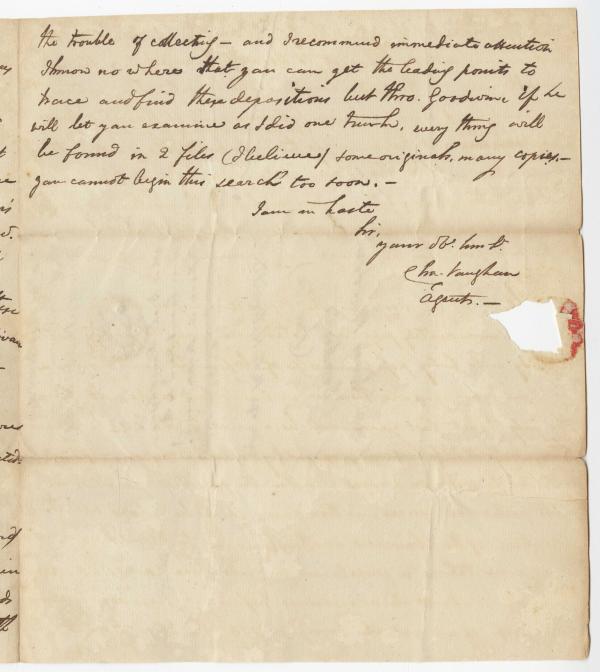 the trouble of collecting — and I recommend immediate attention
I know no where that you can get the leading points to
trace and find these depositions but thro. Goodwin if he
will let you examine as I did one trunk, every thing will
be found in 2 files (I believe) some originals, many copies. —
you cannot begin this search too soon. —
I am in haste
Sir,
your Ob. hm St.
Cha. Vaughan
Agent. —